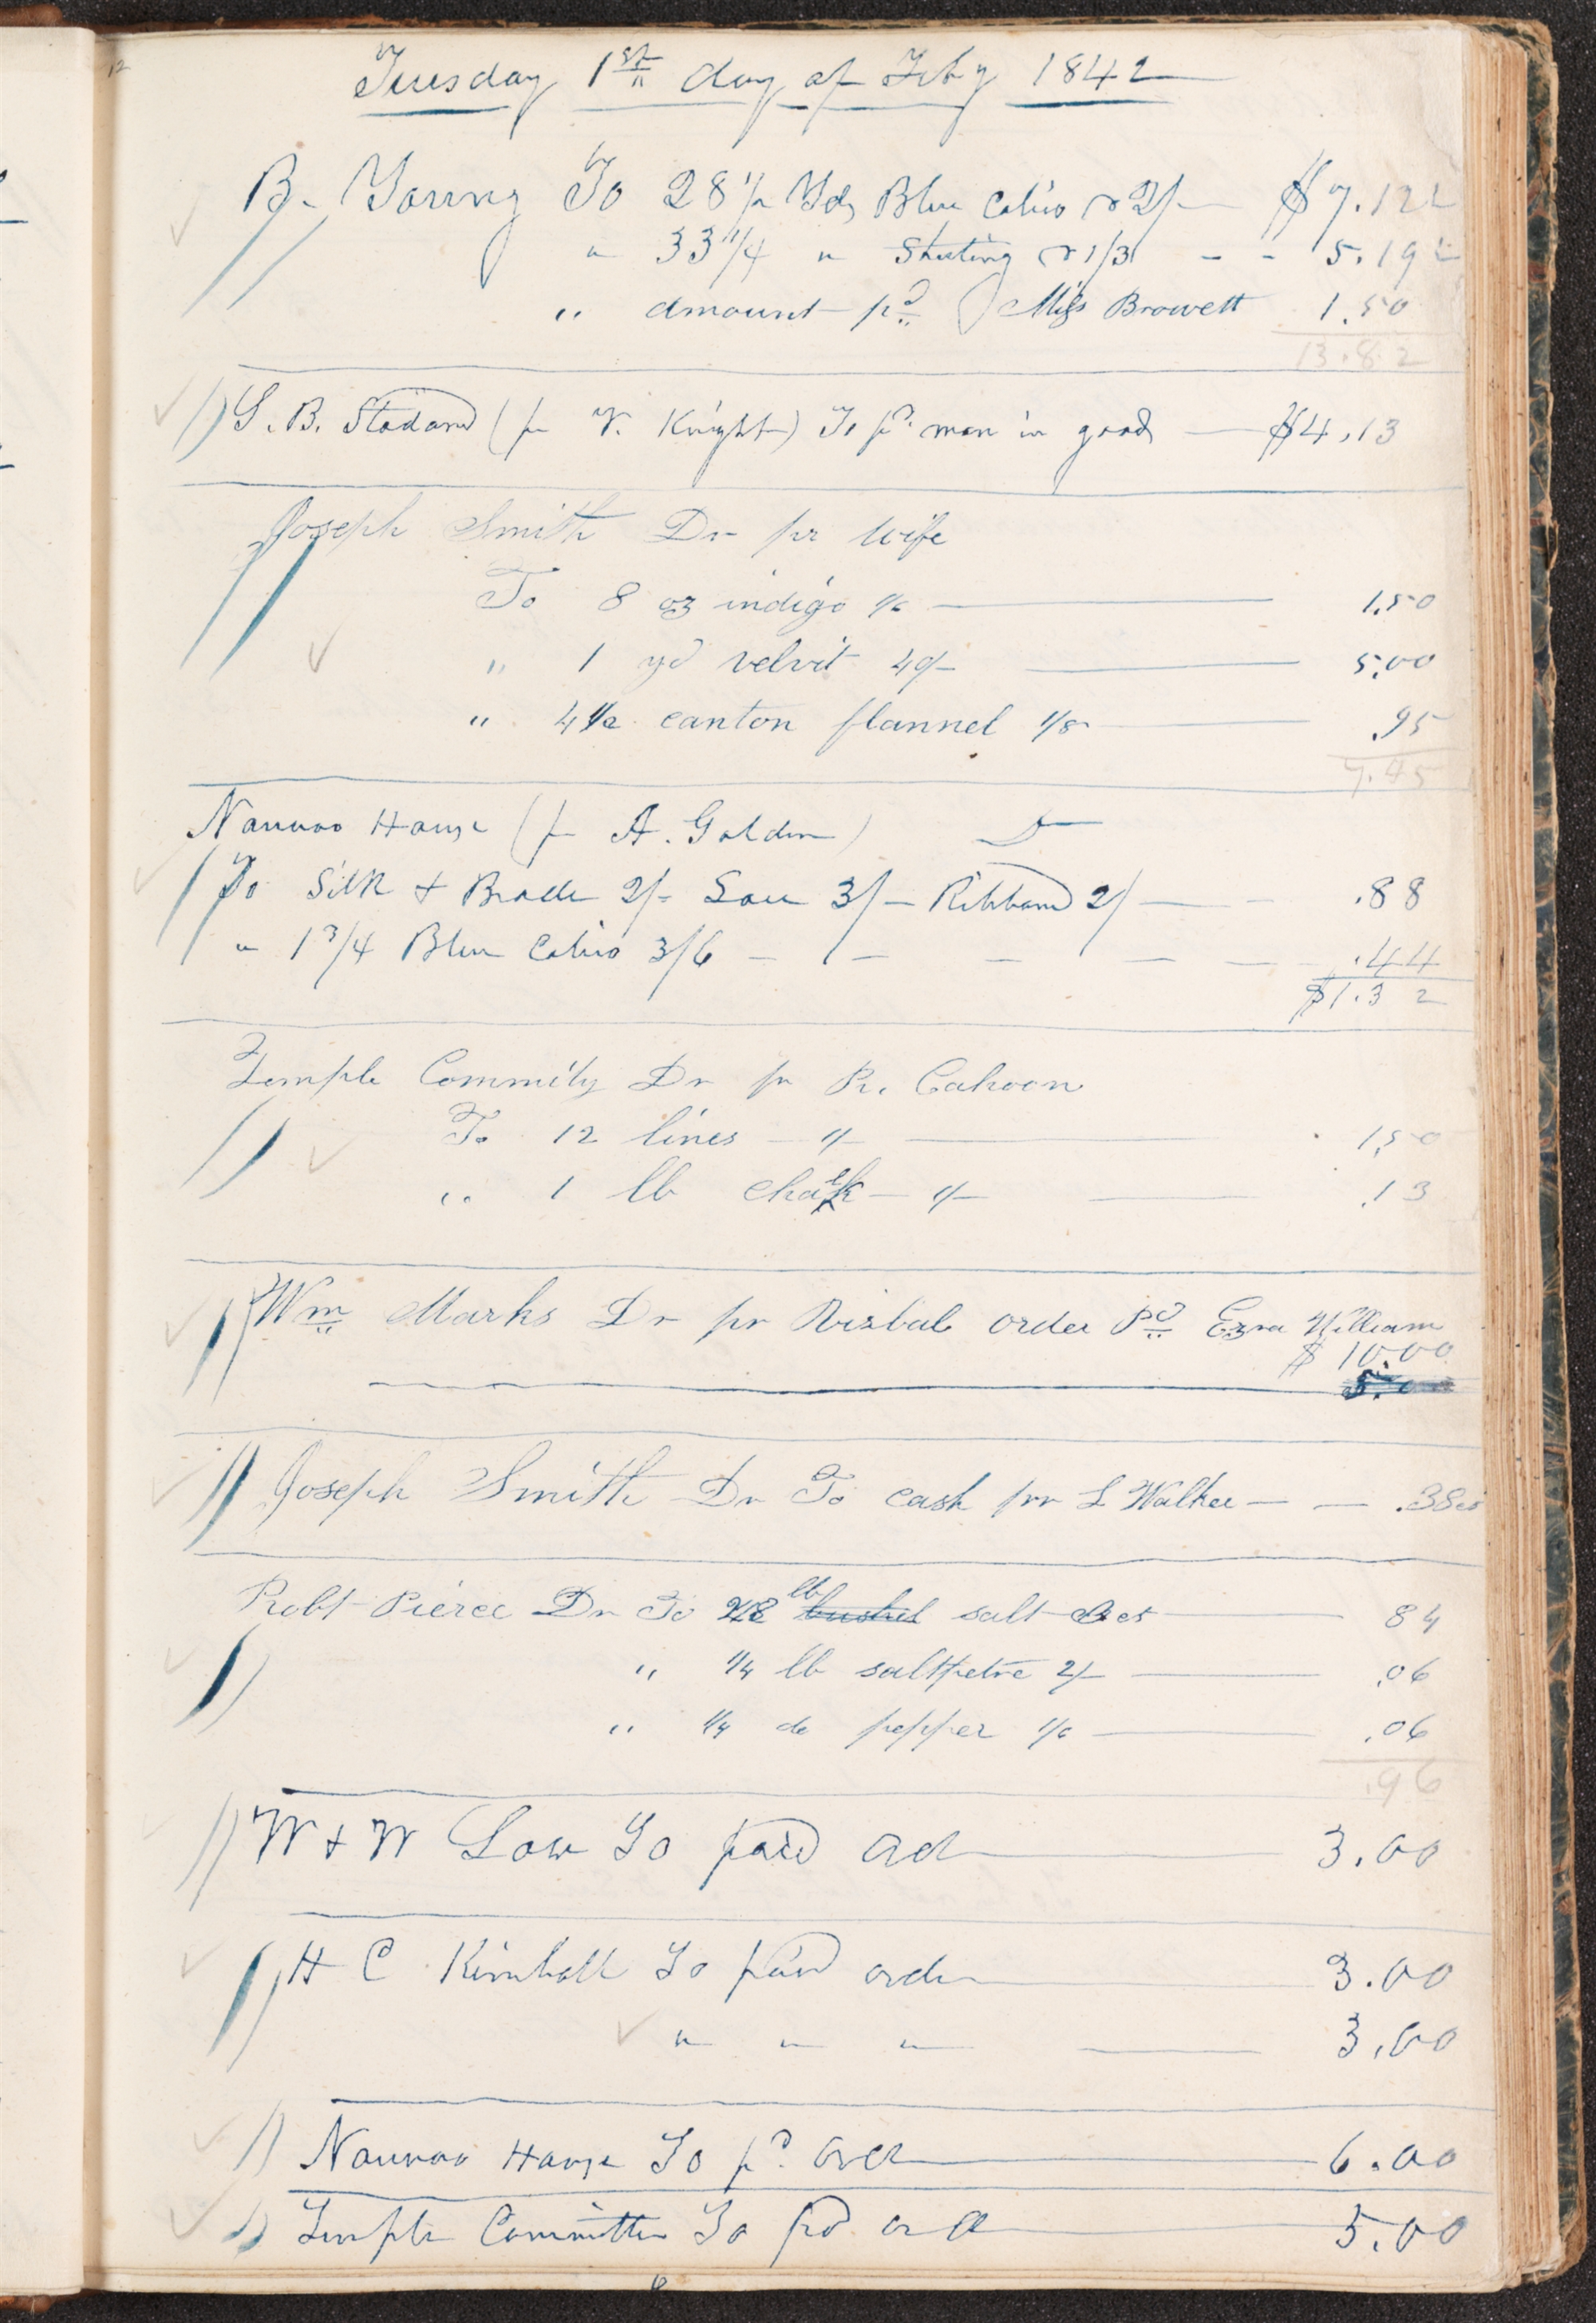 12
Tuesday 1st day of Feby 1842
B. Young To 28 1/2 Yds Blue Calico @ 2/ $7.12½
" 33 1/4 " Sheeting @ 1/3 - - 5.19½
" amount pd Miss Browett 1.50
13.82
S. B. Stodard (pr V. Knight) To pd man in goods $4.13
Joseph Smith Dr pr wife
To 8 oz indigo 1/6 1.50
" 1 yd velvit 40/ 5.00
" 4 1/2 canton flannel 1/8 .95
7.45
Nauvoo House (pr A. Golden) Dr
To Silk & Brade 2/- Lace 3/- Ribband 2/ .88
" 1 3/4 Blue Calico 3/6 .44
$1.32
Temple Commity Dr pr R. Cahoon
To 12 lines 1/ 1.50
" 1 lb chalk 1/ .13
Wm Marks Dr pr order pd Ezra William
$10.00
Joseph Smith Dr To cash pr L Walker .38cts
Robt Pierce Dr To 28 lb bushel salt 3cts 84
" 1/4 lb saltpetre 2/ .06
" 1/4 do pepper 1/6 .06
.96
W & W Law To paid ord 3.00
H C Kimball To paid order 3.00
" " " 3.00
Nauvoo House To pd order 6.00
Temple Committee To pd ord 5.00